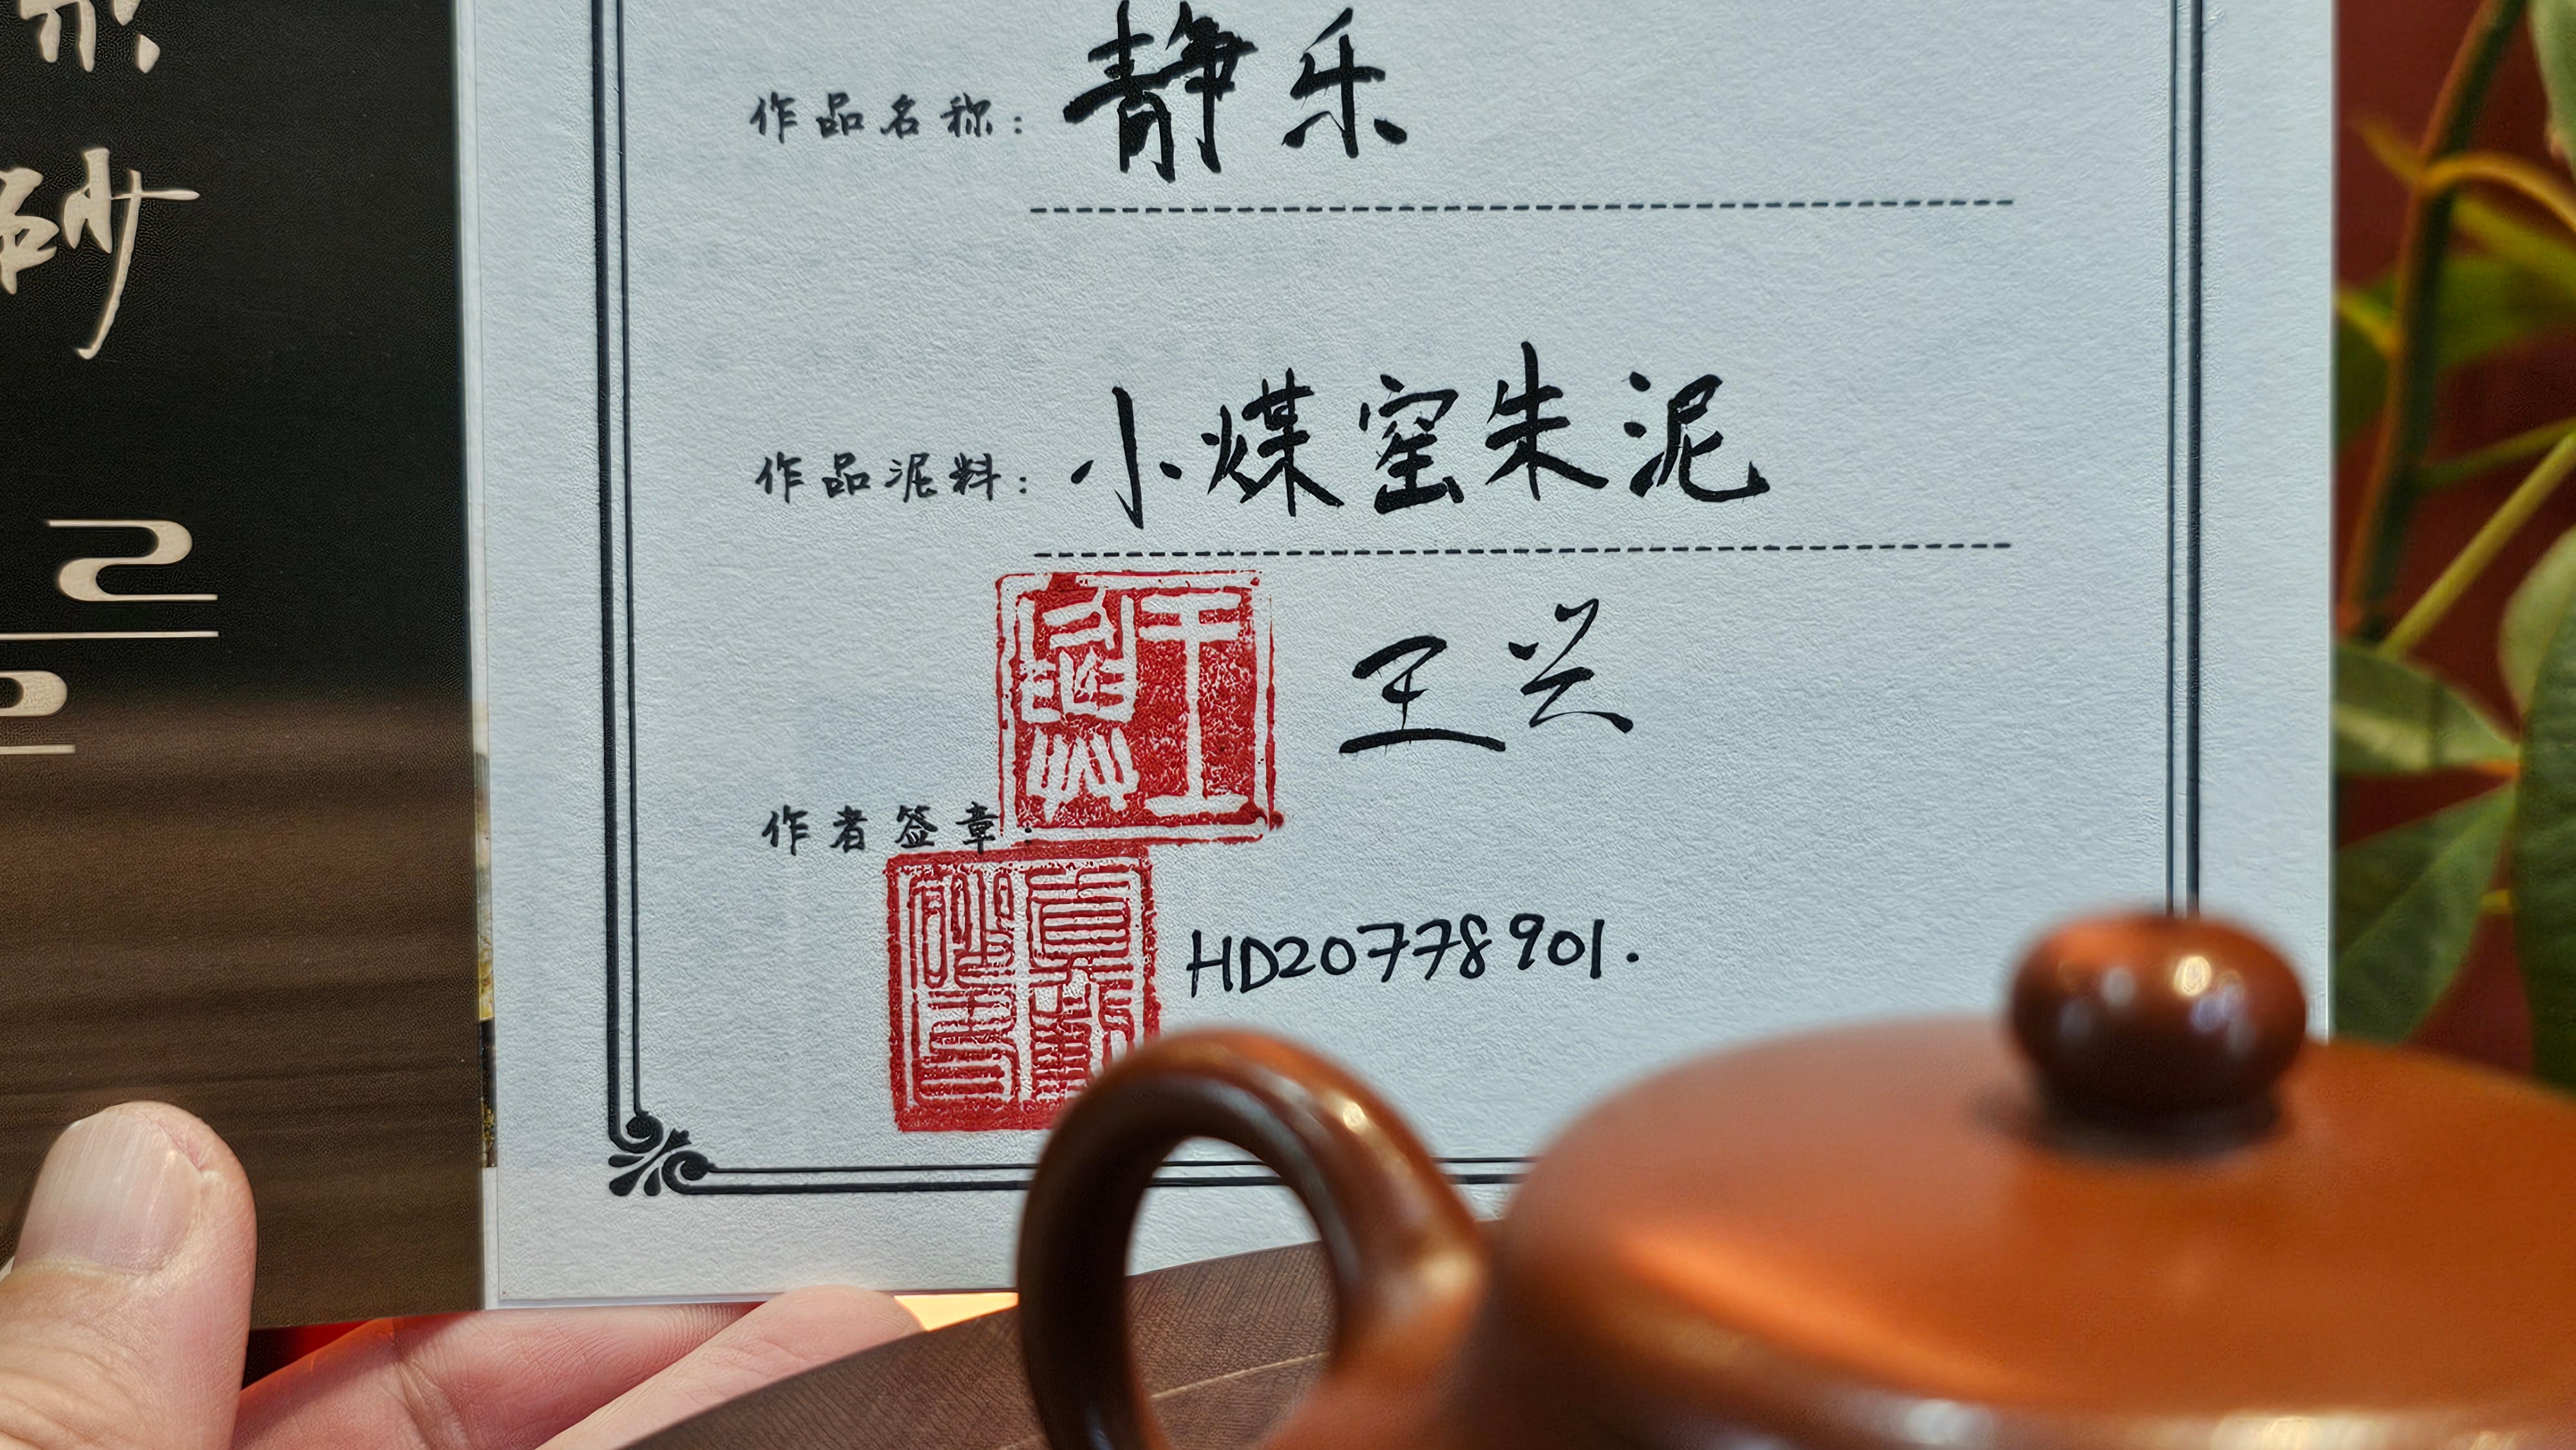 砂
作品名称：静乐
作品泥料：小煤窑朱泥
王兴
作者签章：
HD20778901.